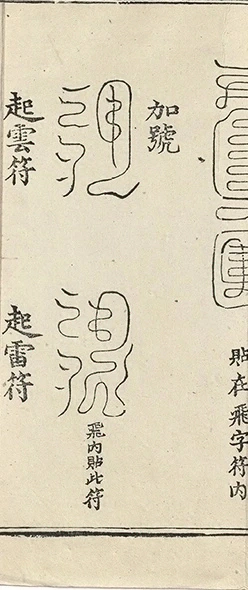 貼在飛字符内
加號
飛内貼此符
起雲符
起雷符